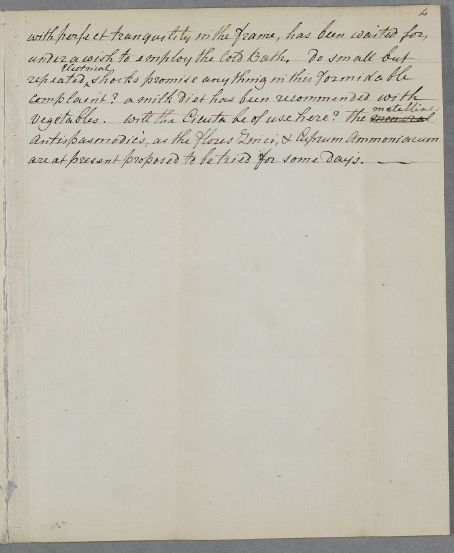 2
with perfect tranquility in the frame, has been waited for,
under a wish to employ the Cold Bath. Do small but
repeated electrical shocks promise any thing in this formidable
complaint? a milk diet has been recommended with
vegetables. will the Cicuta be of use here? The metalline
Antispasmodics, as the flores Zinci, & Cuprum Ammoniacum
are at present proposed to be tried for some days. —